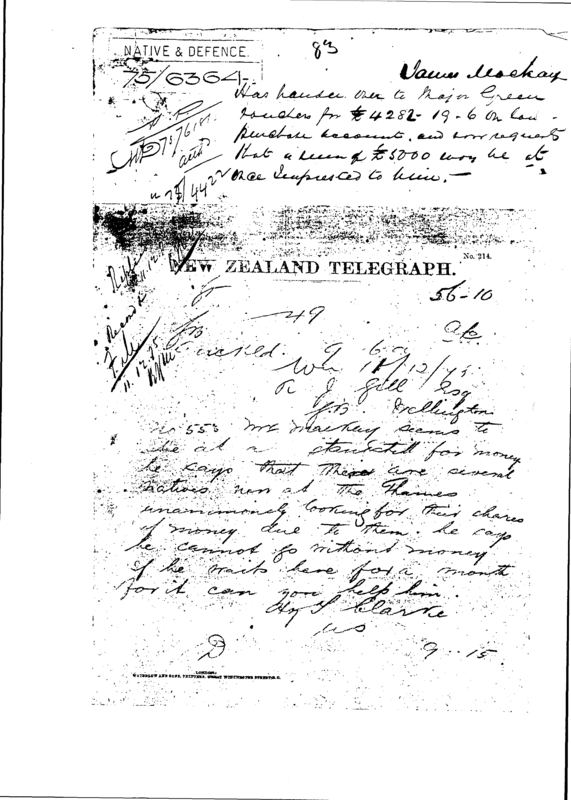 NATIVE & DEFENCE.
83
75/6364
James Mackay
Has handed over to Major Green
vouchers for £4282-19-6 on land
purchase account, and now requests
that a sum of £5000 may be at
once Imprested to him.—
NEW ZEALAND TELEGRAPH.
No. 214.
56-10
49
Record &
File
11.12.75
Wn 11/12/75
R J Gill Esq
Wellington
No 553 Mr Mackay seems to
be at a standstill for money
he says that there are several
natives now at the Thames
unanimously looking for their shares
of money due to them. he says
he cannot go without money
if he waits here for a month
for it can you help him.
Hy T Clarke
US
9 15
LONDON:
WATERLOW AND SONS, PRINTERS, GREAT WINCHESTER STREET, E.C.